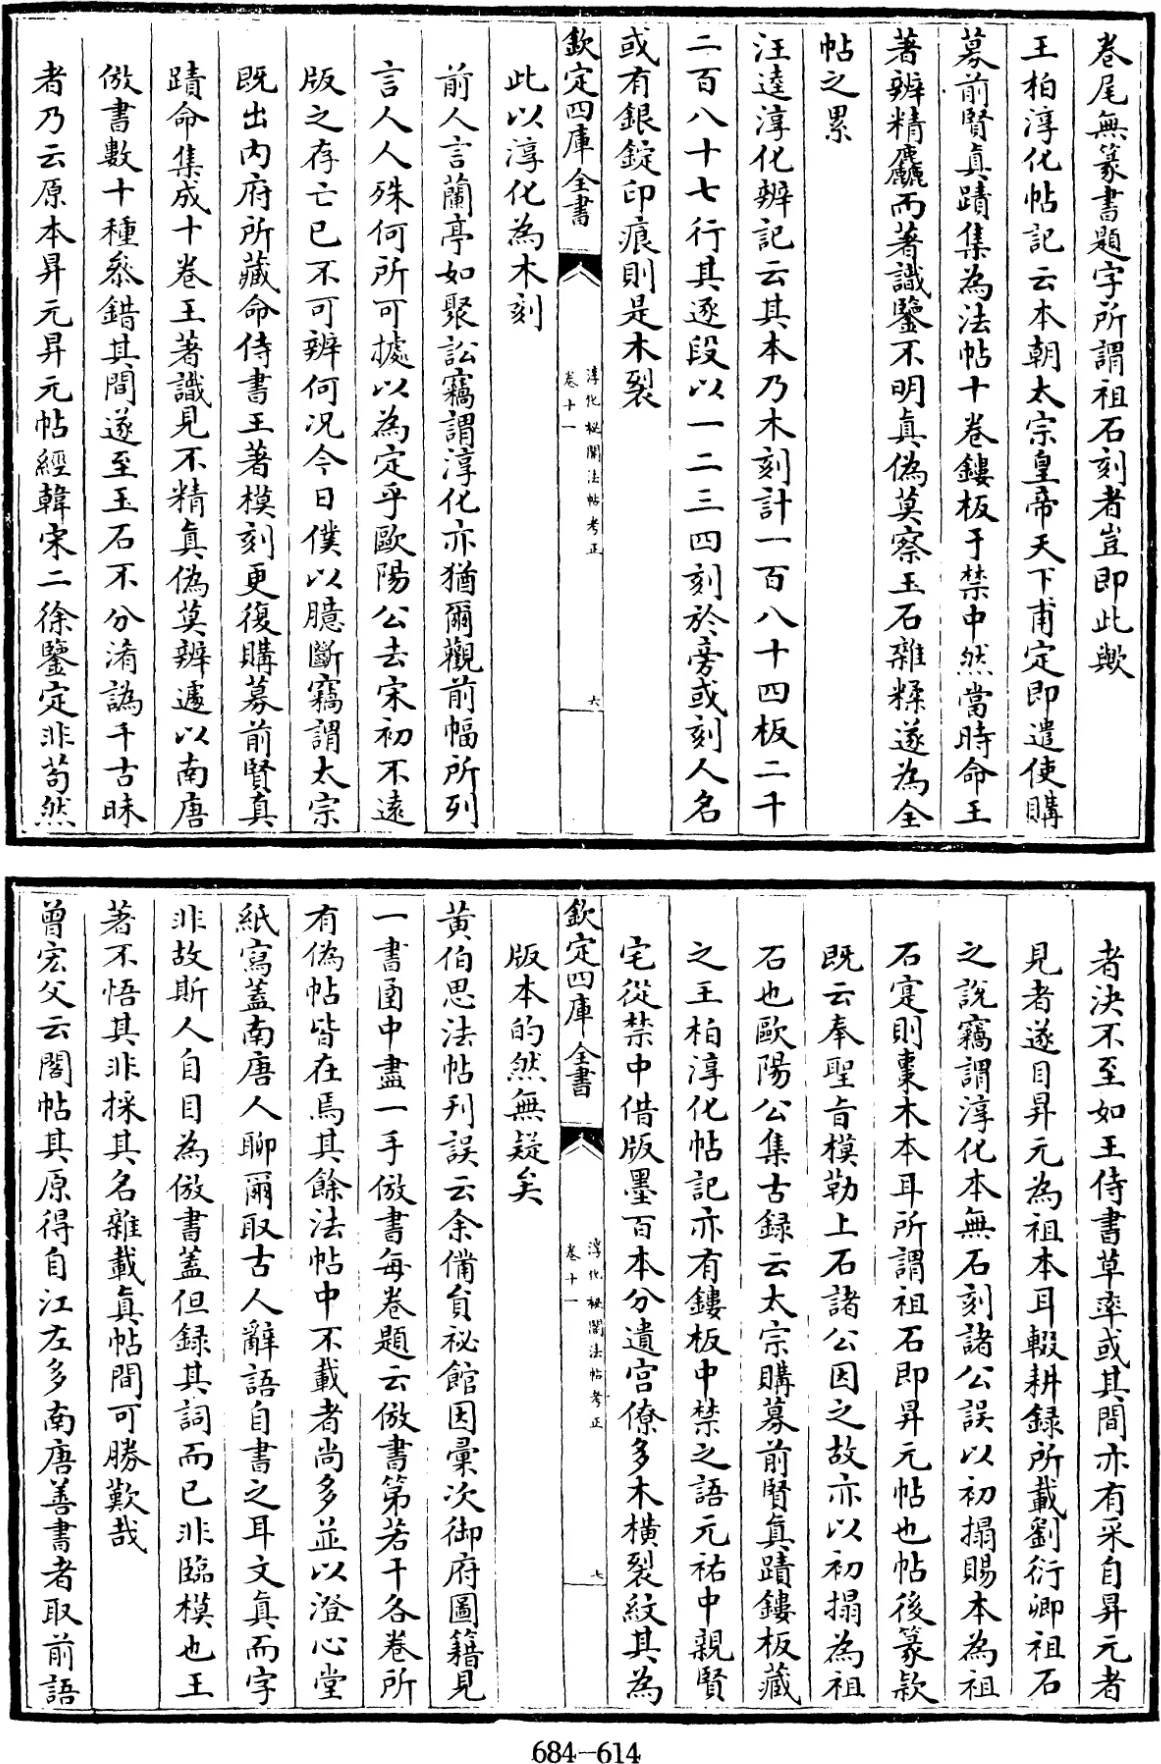 卷尾無篆書題字所謂祖石刻者豈即此歟
王柏淳化帖記云本朝太宗皇帝天下甫定即遣使購
募前賢真蹟集為法帖十卷鏤板于禁中然當時命王
著辨精麤而著識鑒不明真偽莫察玉石雜糅遂為全
帖之累
汪逵淳化辨記云其本乃木刻計一百八十四板二千
二百八十七行其逐段以一二三四刻於旁或刻人名
或有銀錠印痕則是木裂
欽定四庫全書
淳化祕閣法帖考正
卷十一
六
此以淳化為木刻
前人言蘭亭如聚訟竊謂淳化亦猶爾觀前幅所列
言人人殊何所可據以為定乎歐陽公去宋初不遠
版之存亡已不可辨何況今日僕以臆斷竊謂太宗
既出內府所藏命侍書王著模刻更復購募前賢真
蹟命集成十卷王著識見不精真偽莫辨遽以南唐
倣書數十種叅錯其間遂至玉石不分淆譌千古昧
者乃云原本昇元昇元帖經韓宋二徐鑒定非茍然
者決不至如王侍書草率或其間亦有采自昇元者
見者遂目昇元為祖本耳輟耕録所載劉衍卿祖石
之說竊謂淳化本無石刻諸公誤以初搨賜本為祖
石寔則棗木本耳所謂祖石即昇元帖也帖後篆款
既云奉聖旨模勒上石諸公因之故亦以初搨為祖
石也歐陽公集古録云太宗購募前賢真蹟鏤板藏
之王柏淳化帖記亦有鏤板中禁之語元祐中親賢
宅從禁中借版墨百本分遺宫僚多木橫裂紋其為
欽定四庫全書
淳化祕閣法帖考正
卷十一
七
版本的然無疑矣
黃伯思法帖刋誤云余備員祕館因彙次御府圖籍見
一書圅中盡一手倣書每卷題云倣書第若干各卷所
有偽帖皆在焉其餘法帖中不載者尚多並以澄心堂
紙寫蓋南唐人聊爾取古人辭語自書之耳文真而字
非故斯人自目為倣書蓋但録其詞而已非臨模也王
著不悟其非採其名雜載真帖間可勝歎哉
曾宏父云閣帖其原得自江左多南唐善書者取前語
684-614